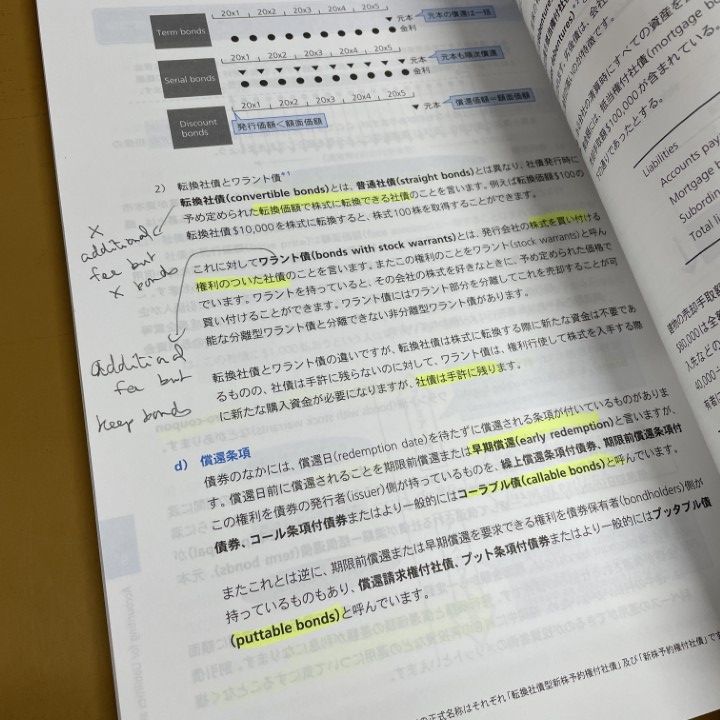 20x1 20x2 20x3 20x4 20x5
Term bonds
元本
金利
元本の償還は一括
20x1 20x2 20x3 20x4 20x5
Serial bonds
元本
金利
元本も順次償還
20x1 20x2 20x3 20x4 20x5
Discount bonds
元本
発行価額<額面価額
償還価額=額面価額
2) 転換社債とワラント債*1
転換社債(convertible bonds)とは、普通社債(straight bonds)とは異なり、社債発行時に
予め定められた転換価額で株式に転換できる社債のことを言います。例えば転換価額$100の
転換社債$10,000を株式に転換すると、株式100株を取得することができます。
×
additional
fee but
× bonds
これに対してワラント債(bonds with stock warrants)とは、発行会社の株式を買い付ける
権利のついた社債のことを言います。またこの権利のことをワラント(stock warrants)と呼ん
でいます。ワラントを持っていると、その会社の株式を好きなときに、予め定められた価格で
買い付けることができます。ワラント債にはワラント部分を分離してこれを売却することが可
能な分離型ワラント債と分離できない非分離型ワラント債があります。
additional
fee but
keep bonds
転換社債とワラント債の違いですが、転換社債は株式に転換する際に新たな資金は不要であ
るものの、社債は手許に残らないのに対して、ワラント債は、権利行使して株式を入手する際
に新たな購入資金が必要になりますが、社債は手許に残ります。
d) 償還条項
債券のなかには、償還日(redemption date)を待たずに償還される条項が付いているものがありま
す。償還日前に償還されることを期限前償還または早期償還(early redemption)と言いますが、
この権利を債券の発行者(issuer)側が持っているものを、繰上償還条項付債券、期限前償還条項付
債券、コール条項付債券またはより一般的にはコーラブル債(callable bonds)と呼んでいます。
またこれとは逆に、期限前償還または早期償還を要求できる権利を債券保有者(bondholders)側が
持っているものもあり、償還請求権付社債、プット条項付債券またはより一般的にはプッタブル債
(puttable bonds)と呼んでいます。
の正式名称はそれぞれ「転換社債型新株予約権付社債」及び「新株予約権付社債」です
(mortgage bo
$100,000が含まれている。
Liabilities
Accounts pay
Mortgage
Subordin
Total l